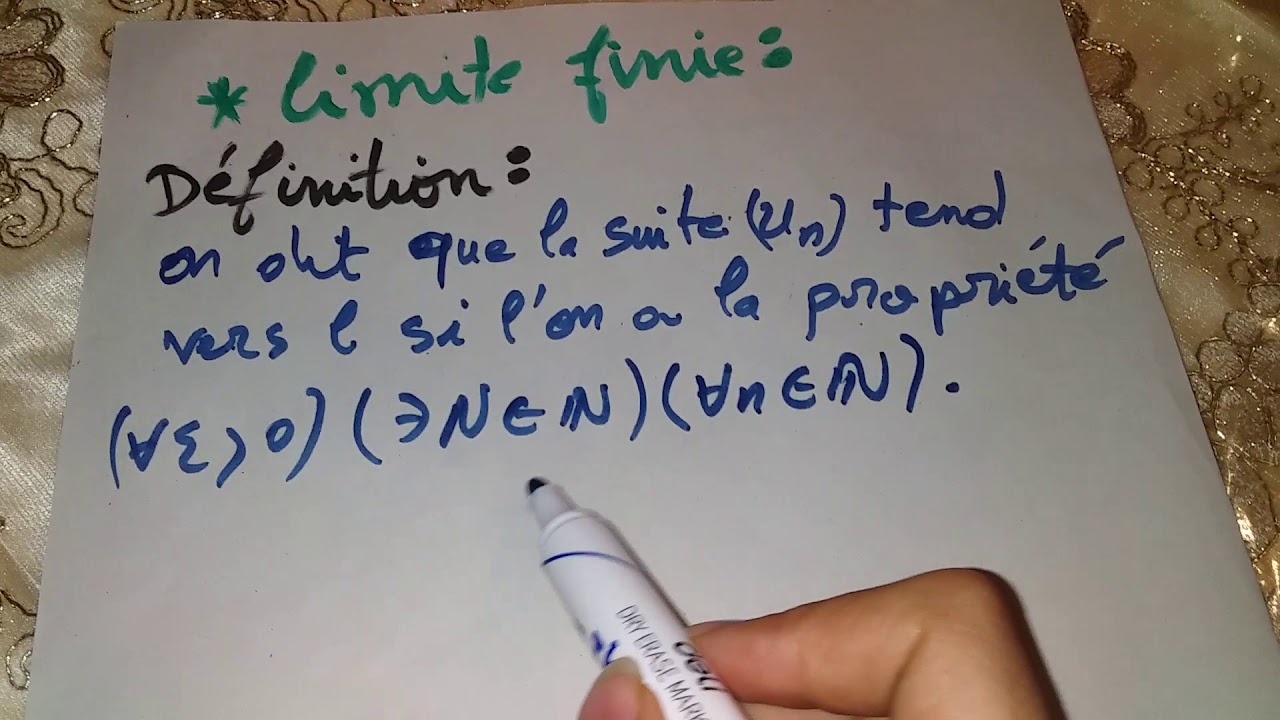 * limite finie:
Définition:
on dit que la suite (Un) tend
vers l si l'on a la propriété
(∀ε>0) (∃N∈ℕ)(∀n∈ℕ).
DRY ERASE MARK
deli